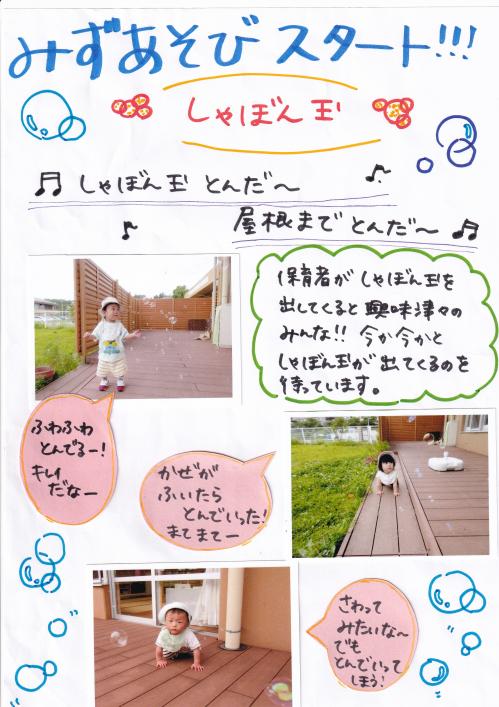 みずあそびスタート!!!
しゃぼん玉
しゃぼん玉 とんだ〜
屋根まで とんだ〜
保育者が しゃぼん玉を
出してくると 興味津々の
みんな!! 今か今かと
しゃぼん玉が 出てくるのを
待っています。
ふわふわ
とんでるー!
キレイ
だなー
かぜが
ふいたら
とんでいった!
まてまてー
さわって
みたいな〜
でも
とんでいって
しまう!